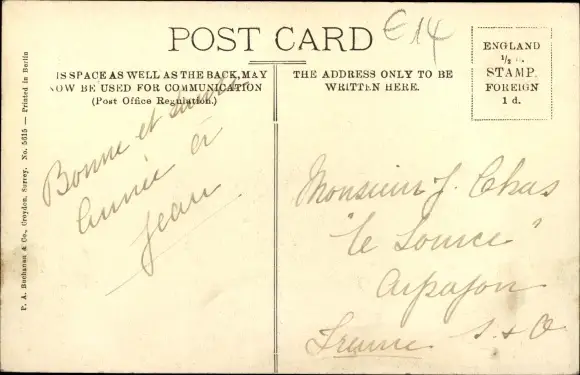 POST CARD
E14
IS SPACE AS WELL AS THE BACK, MAY
NOW BE USED FOR COMMUNICATION
(Post Office Regulation.)
THE ADDRESS ONLY TO BE
WRITTEN HERE.
ENGLAND
½ d.
STAMP.
FOREIGN
1 d.
P. A. Buchanan & Co., Croydon, Surrey. No. 5615 — Printed in Berlin
Bonne et
Année
Jean
Monsieur J. Chas
"Le Source"
Arpajon
France S. & O